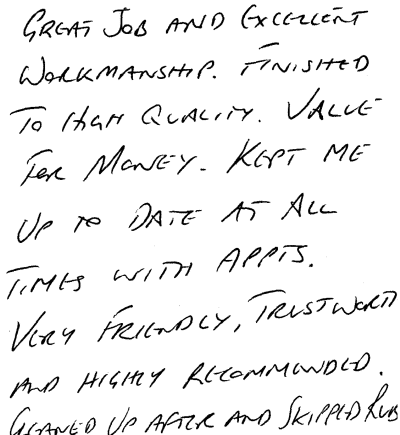 GREAT JOB AND EXCELLENT
WORKMANSHIP. FINISHED
TO HIGH QUALITY. VALUE
FOR MONEY. KEPT ME
UP TO DATE AT ALL
TIMES WITH APPTS.
VERY FRIENDLY, TRUSTWORD
AND HIGHLY RECOMMENDED.
CLEANED UP AFTER AND SKIPPED RUB